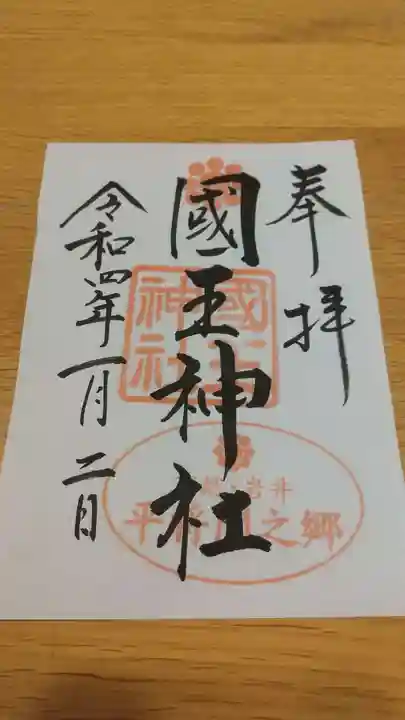 奉拝
國王神社
國王神社
岩井
平將門之郷
令和四年一月二日